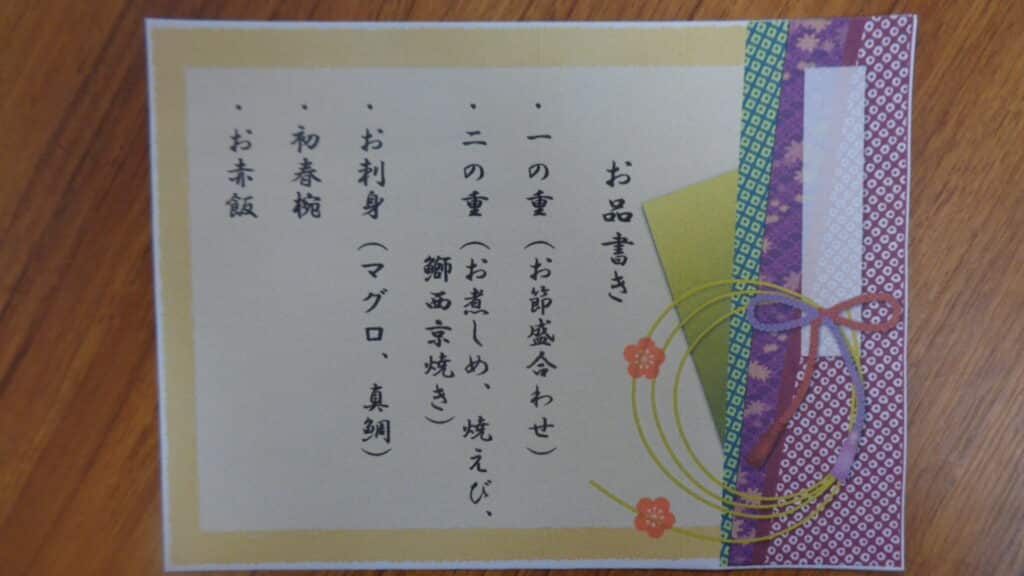 お品書き
・一の重（お節盛合わせ）
・二の重（お煮しめ、焼えび、
鰤西京焼き）
・お刺身（マグロ、真鯛）
・初春椀
・お赤飯